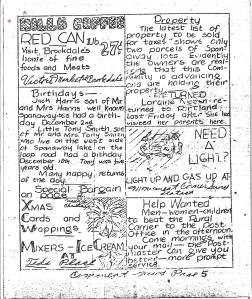 HILLS COFFEE
RED CAN 1 lb 27¢
Visit Brookdale
home of fine
foods and Meats
Victory Market Brookdale
Birthdays—
Jack Harris son of Mr
and Mrs Harris well known
Spanaway-ite had a birth-
day December 2nd
Little Tony Smith, son
of Mr and Mrs Tony Smith
who live on the west side
of Spanaway lake on the
loop road had a birthday
December 10th. Tony was five
years old
Many happy returns
of the day.
Special Bargain
page
XMAS
Cards and
Wrappings
MIXERS—ICE CREAM
AT
Property
The latest list of
property to be sold
for taxes shows only
two parcels of Span-
away lots. Evidently
the owners are real-
izing that this Com-
munity is advancing
and are holding their
property.
RETURNED
Loraine Nielsen re-
turned to Portland
last Friday after She had
visited her parents here.
NEED
A
LIGHT?
LIGHT UP AND GAS UP AT
Help Wanted
Men-women-children
to beat the Rural
Carrier to the Post
Office in the afternoon
Come mornings with
your mail—the Post-
master can give you
better—more prompt
service
Comment Print Page 5